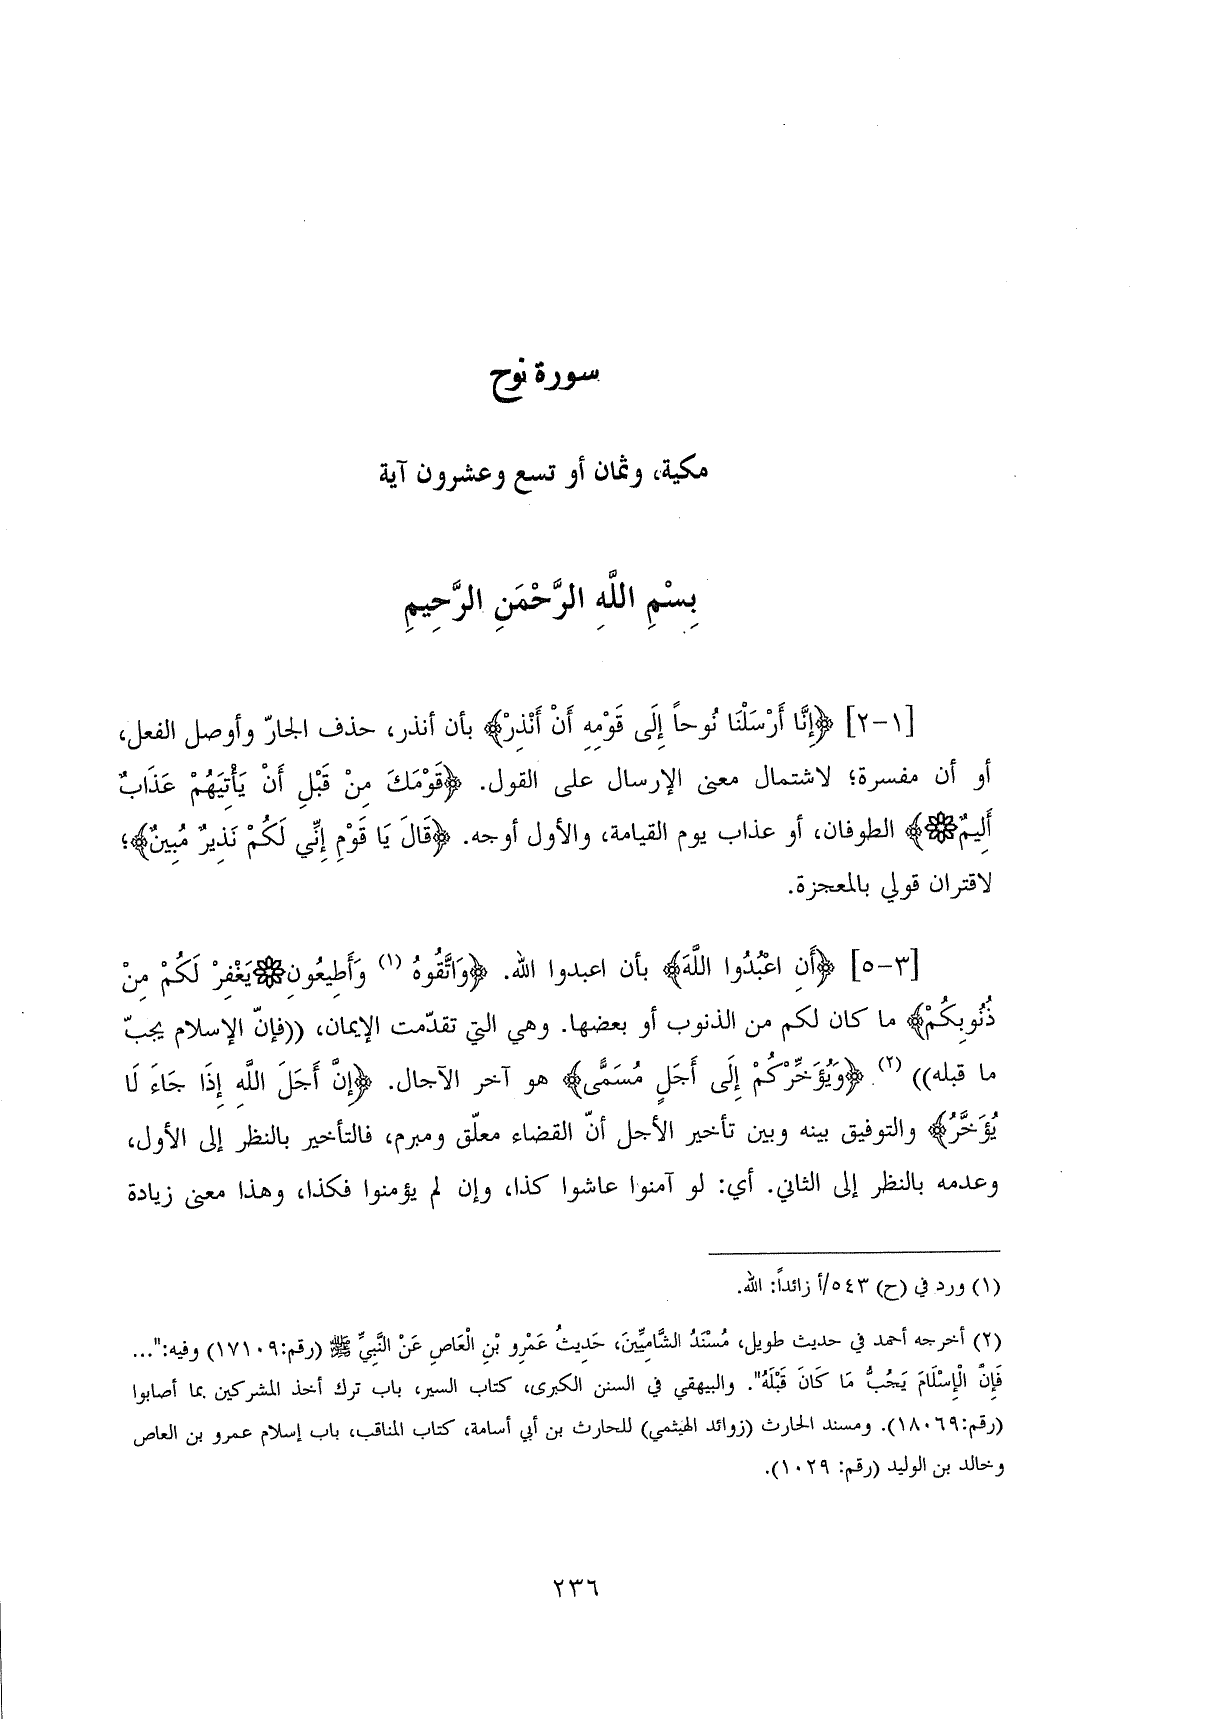 سورة نوح
مكية، وثمان أو تسع وعشرون آية
بِسْمِ اللَّهِ الرَّحْمَنِ الرَّحِيمِ
[١-٢] ﴿إِنَّا أَرْسَلْنَا نُوحاً إِلَى قَوْمِهِ أَنْ أَنْذِرْ﴾ بأن أنذر، حذف الجارّ وأوصل الفعل،
أو أن مفسرة؛ لاشتمال معنى الإرسال على القول. ﴿قَوْمَكَ مِنْ قَبْلِ أَنْ يَأْتِيَهُمْ عَذَابٌ
أَلِيمٌ۞﴾ الطوفان، أو عذاب يوم القيامة، والأول أوجه. ﴿قَالَ يَا قَوْمِ إِنِّي لَكُمْ نَذِيرٌ مُبِينٌ﴾؛
لاقتران قولي بالمعجزة.
[٣-٥] ﴿أَنِ اعْبُدُوا اللَّهَ﴾ بأن اعبدوا الله. ﴿وَاتَّقُوهُ (١) وَأَطِيعُونِ۞يَغْفِرْ لَكُمْ مِنْ
ذُنُوبِكُمْ﴾ ما كان لكم من الذنوب أو بعضها. وهي التي تقدّمت الإيمان، ((فإنّ الإسلام يجبّ
ما قبله)) (٢). ﴿وَيُؤَخِّرْكُمْ إِلَى أَجَلٍ مُسَمًّى﴾ هو آخر الآجال. ﴿إِنَّ أَجَلَ اللَّهِ إِذَا جَاءَ لَا
يُؤَخَّرُ﴾ والتوفيق بينه وبين تأخير الأجل أنّ القضاء معلّق ومبرم، فالتأخير بالنظر إلى الأول،
وعدمه بالنظر إلى الثاني. أي: لو آمنوا عاشوا كذا، وإن لم يؤمنوا فكذا، وهذا معنى زيادة
(١) ورد في (ح) ٥٤٣/أ زائداً: الله.
(٢) أخرجه أحمد في حديث طويل، مُسْنَدُ الشَّامِيِّينَ، حَدِيثُ عَمْرِو بْنِ الْعَاصِ عَنْ النَّبِيِّ ﷺ (رقم:١٧١٠٩) وفيه:"...
فَإِنَّ الْإِسْلَامَ يَجُبُّ مَا كَانَ قَبْلَهُ". والبيهقي في السنن الكبرى، كتاب السير، باب ترك أخذ المشركين بما أصابوا
(رقم:١٨٠٦٩). ومسند الحارث (زوائد الهيثمي) للحارث بن أبي أسامة، كتاب المناقب، باب إسلام عمرو بن العاص
وخالد بن الوليد (رقم: ١٠٢٩).
٢٣٦